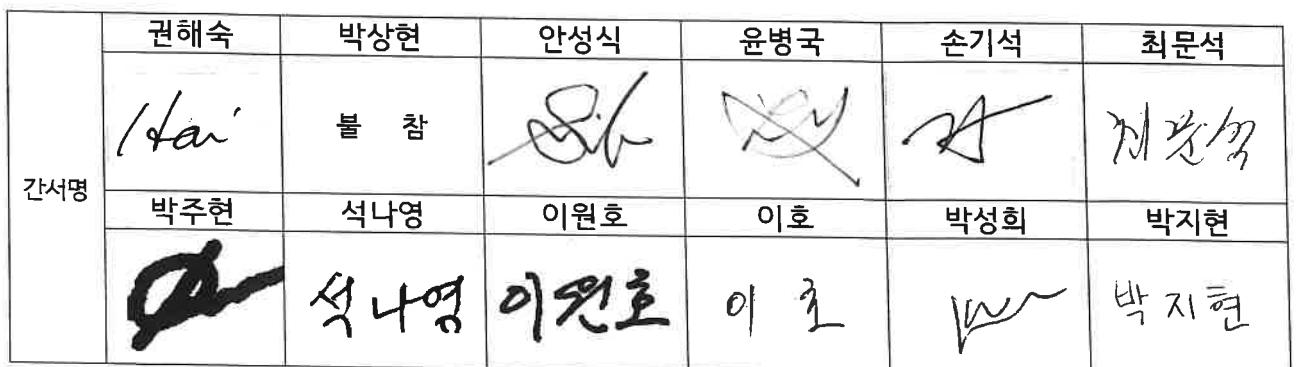 권해숙 박상현 안성식 윤병국 손기석 최문석
Hai 불 참 최문석
간서명
박주현 석나영 이원호 이호 박성희 박지현
석나영 이원호 이호 박지현